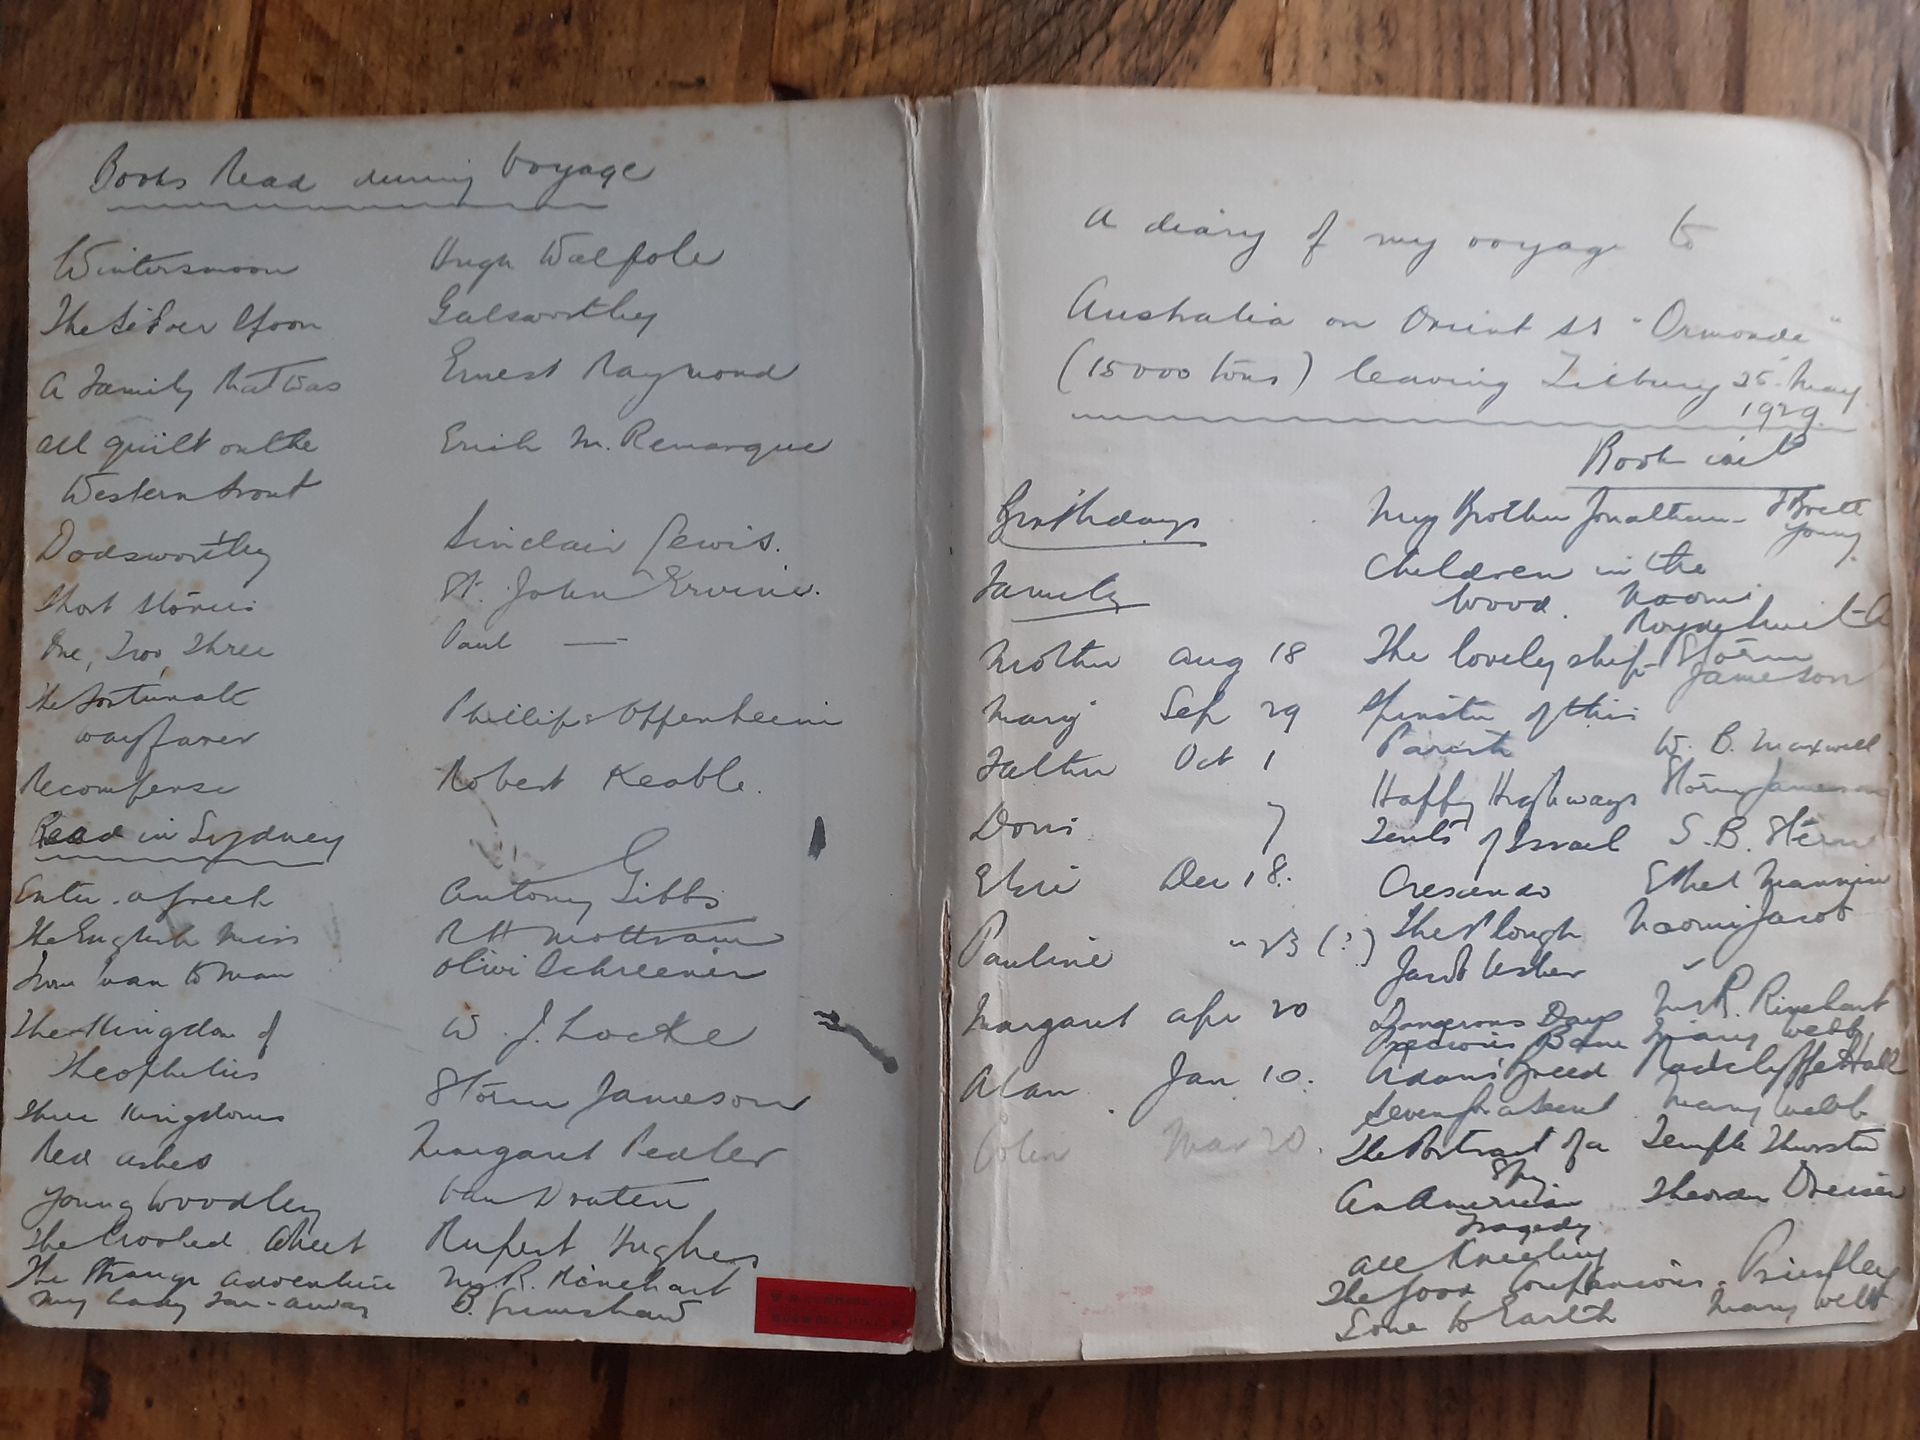 Books Read during Voyage
Wintersmoon Hugh Walpole
The Silver Spoon Galsworthy
A Family that Was Ernest Raymond
All quiet on the Erich M. Remarque
Western front
Dodsworthy Sinclair Lewis.
Short stories St. John Ervine.
One, Two, Three Paul —
The fortunate
wayfarer Phillips Oppenheim
Recompense Robert Keable.
Read in Sydney
Enter a freek Antony Gibbs
The English Miss R H Mottram
From Man to Man Olive Schreener
The Kingdom of W. J. Locke
Theophilus
Three Kingdoms Storm Jameson
Red ashes Margaret Pedler
Young Woodley Van Druten
The Crooked Rupert Hughes
The Strange Adventure M. R. Rinehart
My Lady Far-away B. Grimshaw
A diary of my voyage to
Australia on Orient SS "Ormonde"
(15000 tons) leaving Tilbury 25 May
1929
Book List
Birthdays
Family
Mother Aug 18
Mary Sep 29
Father Oct 1
Doris 7
Elsie Dec 18.
Pauline " 23 (?)
Margaret Apr 20
Alan Jan 10.
Colin Mar 20.
My Brother Jonathan - F Brett
Young
Children in the
Wood. Naomi
Royde Smith
The lovely ship - Storm
Jameson
Spinster of this
Parish W. B. Maxwell
Happy Highways Storm Jameson
Tents of Israel S. B. Stern
Crescendo Ethel Mannin
The Plough Naomi Jacob
Jacob Usher "
Dangerous Days M. R. Rinehart
Precious Bane Mary Webb
Adam's Breed Radclyffe Hall
Seven for a Secret Mary Webb
The Portrait of a Temple Thurston
Spy
An American Theodore Dreiser
Tragedy
All Kneeling
The Good Companions - Priestley
Gone to Earth Mary Webb